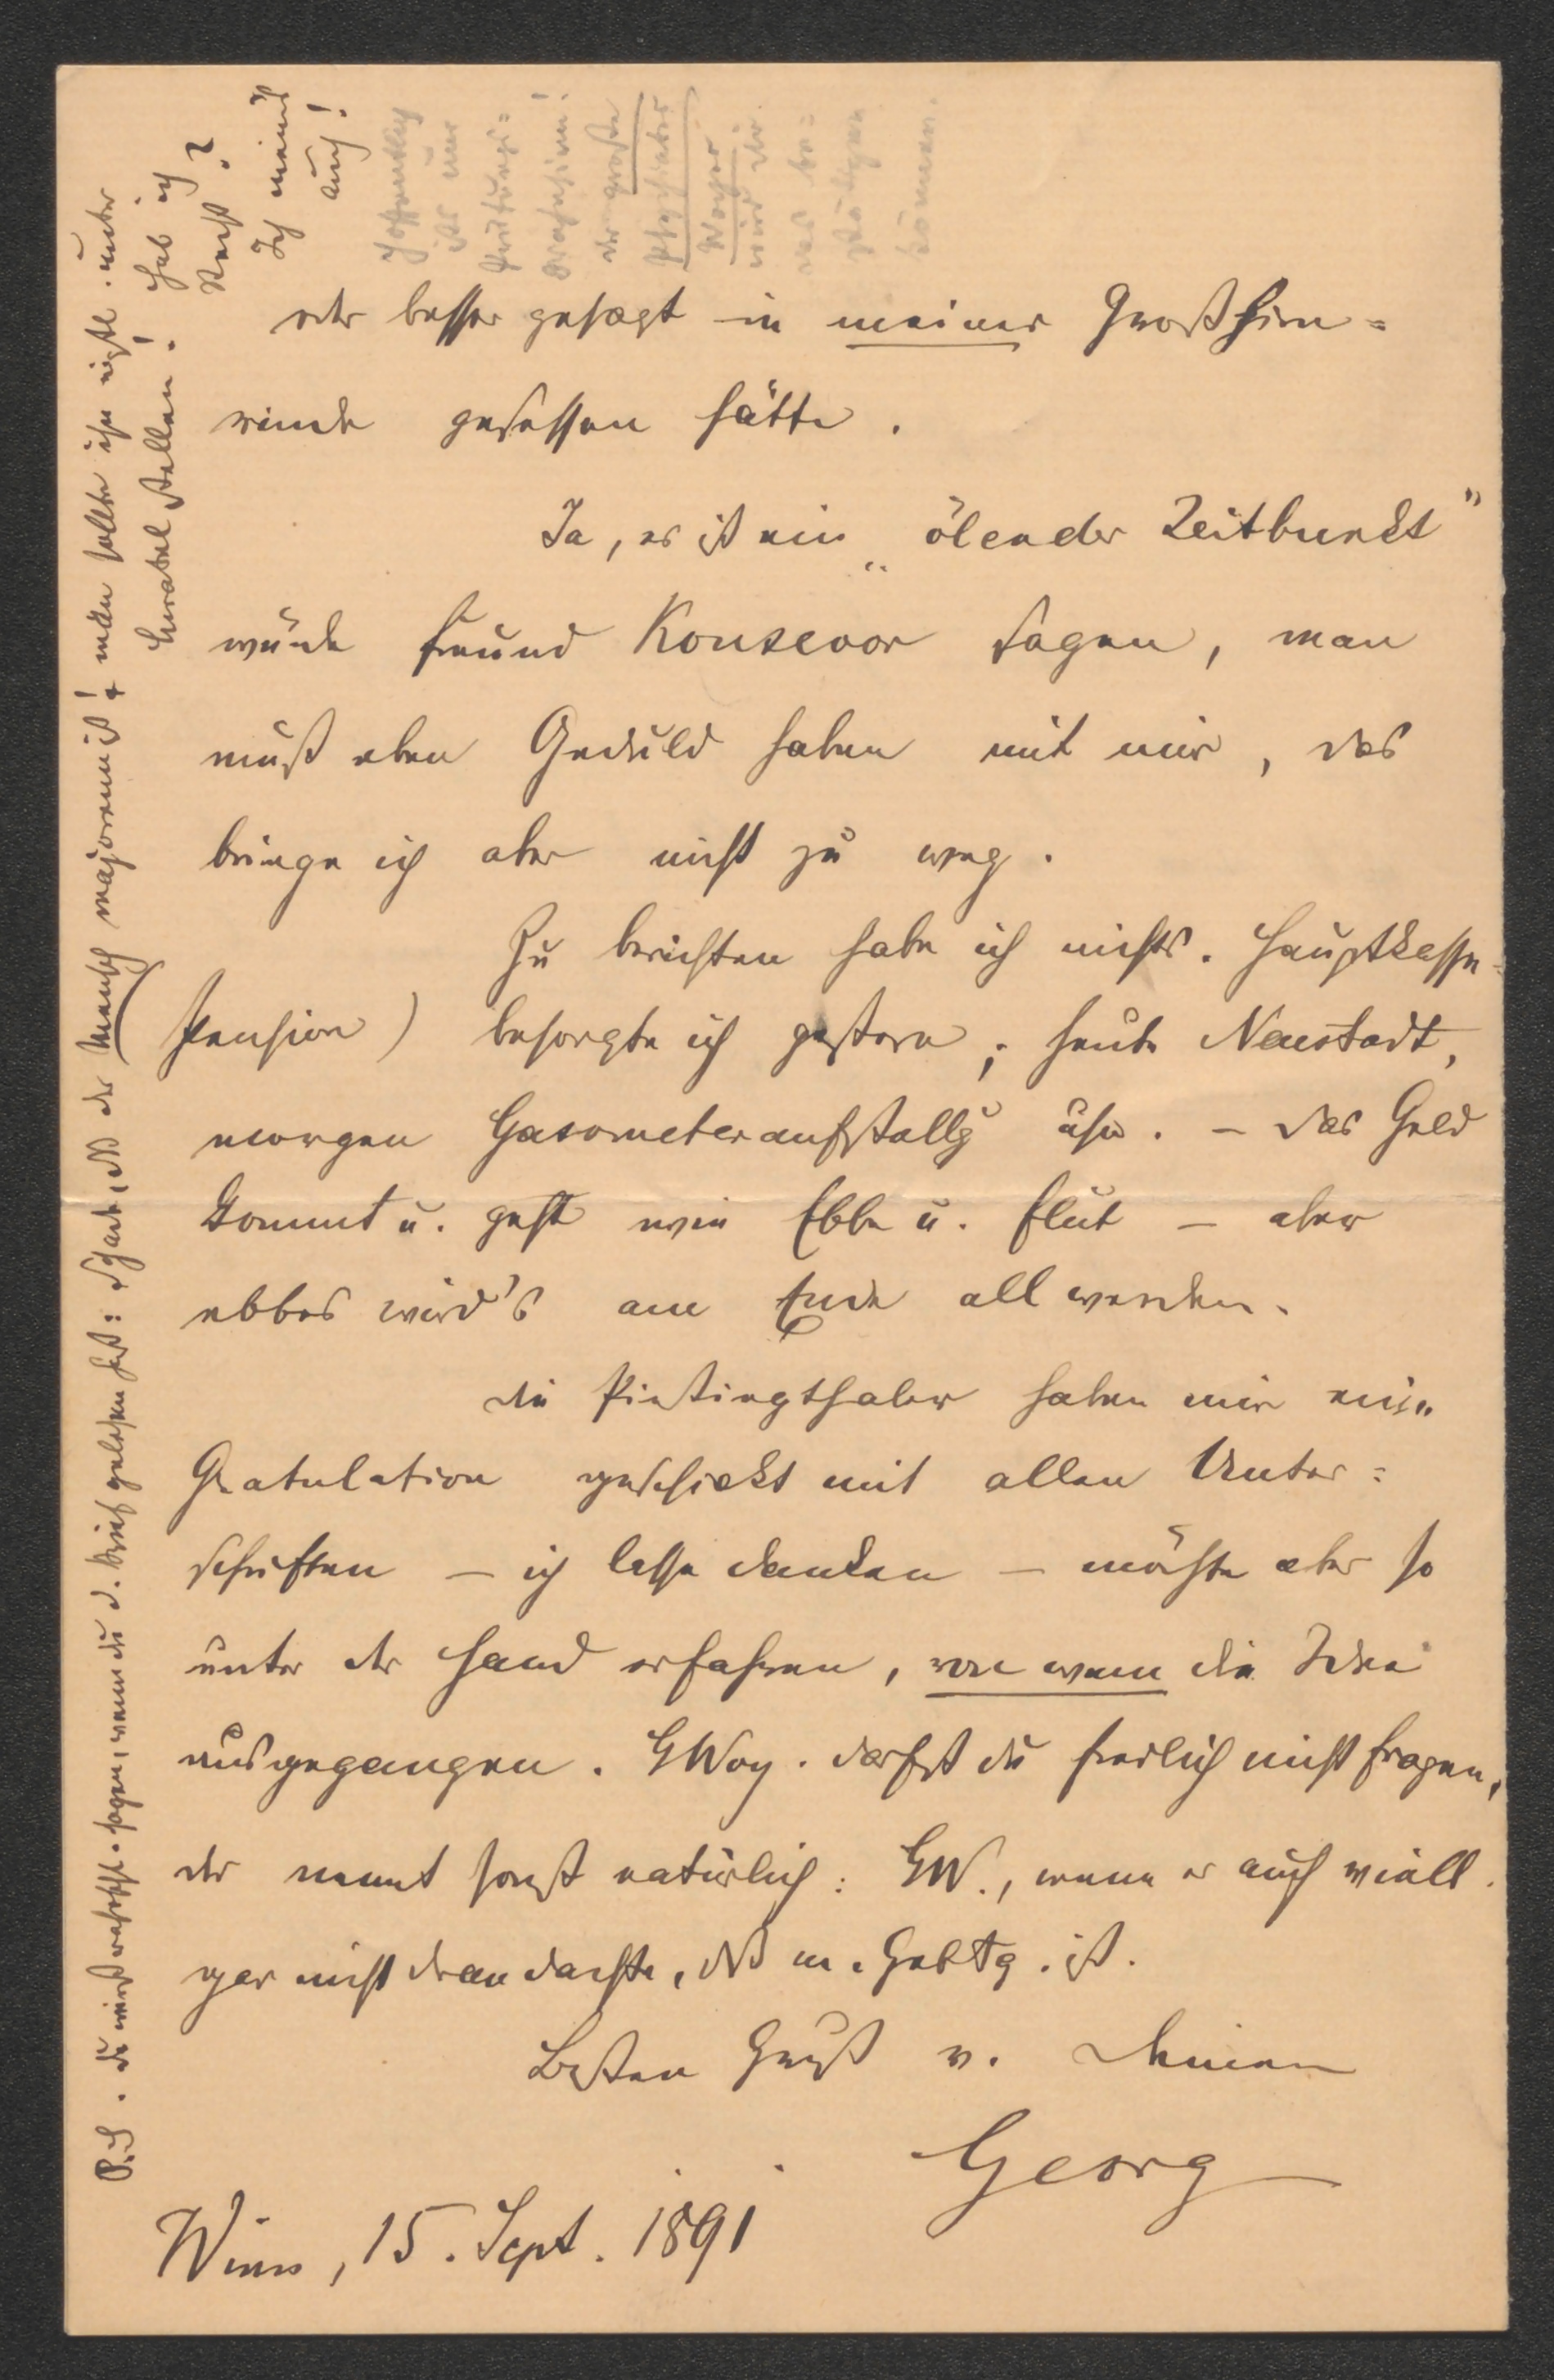 oder besser gesagt in meiner Großhirn=
rinde gesessen hätte.
Ja, es ist ein „ölender Zeitbunkt"
würde Freund Konseoor sagen, man
muß eben Geduld haben mit mir, das
bringe ich aber nicht zu weg.
Zu berichten habe ich nichts. Hauptkasse
(Pension) besorgte ich gestern; heute Neustadt,
morgen Gasometeraufstellg usw. – Das Geld
kommt u. geht wie Ebbe u. Flut – aber
ebbes wird's am Ende all werden.
Die Piestingthaler haben mir eine
Gratulation geschickt mit allen Unter=
schriften – ich lasse danken – möchte aber so
unter der Hand erfahren, von wem die Idee
ausgegangen. GWoy. darfst du freilich nicht fragen,
der nennt sonst natürlich: GW., wenn er auch viell.
gar nicht dran dachte, daß m. Gebtg. ist.
Besten Gruß v. Deinem
Georg
Wien, 15. Sept. 1891
P.S. Du wirst wahrschl. sagen, wenn du d. Brief gelesen hast: Schade, daß der Mensch majorenn ist! man sollte ihn unter
Curatel stellen! Hab ich
Recht?
Ich meine
auch!
Hoffentlich
ist nur
der große
Psychiater
Woyer
wird dir
das be=
stätigen
können.